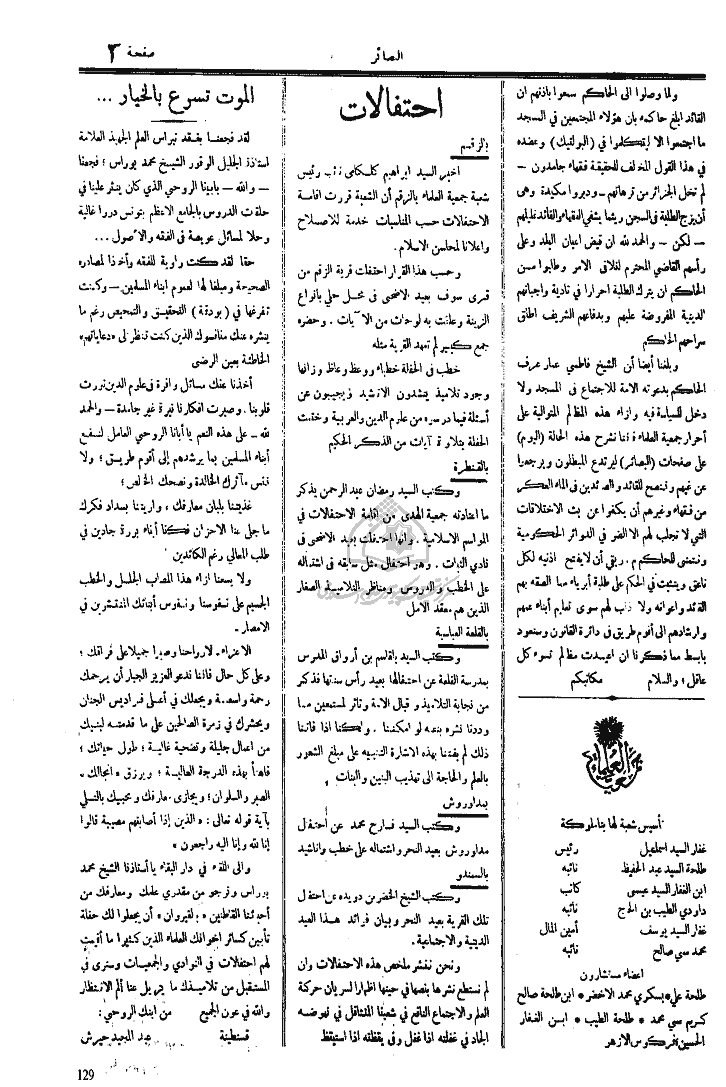 صفحة ٣
البصائر
ولما وصلوا الى الحاكم سعوا باذنهم ان
القائد ابلغ حاكمه بان هؤلاء المجتمعين في المسجد
ما اجتمعوا الا ليتكلموا في (البولتيك) وعضده
في هذا القول المخالف للحقيقة فقهاء جامدون —
لم تخل الجزائر من ترهاتهم — ودبروا مكيدة وهي
أن يزج الطلبة في السجن ريثما يشفي الفقهاء والقائد غليلهم
— لكن — والحمد لله ان قيض اعيان البلد وعلى
رأسهم القاضي المحترم لتلافى الامر وطالبوا من
الحاكم ان يترك الطلبة احرارا في تادية واجباتهم
الدينية المفروضة عليهم وبدفاعهم الشريف اطلق
سراحهم الحاكم
وبلغنا أيضا أن الشيخ فاطمي عمار عرف
الحاكم بدعوته الامة للاجتماع في المسجد ولا
دخل للسياسة فيه وازاء هذه المظالم المتوالية على
أحرار جمعية العلماء فاننا نشرح هذه الحالة (اليوم)
على صفحات (البصائر) ليرتدع المبطلون ويرجعوا
عن غيهم وننصح للقائد والصائدين في الماء العكر
من فقهاء وغيرهم أن يكفوا عن بث الاختلافات
التي لا تجلب لهم الا الضرر في الدوائر الحكومية
ونتمنى للحاكم أن لا يفتح اذنيه لكل
ناعق ويتثبت في الحكم على طلبة أبرياء مما الصقه بهم
القائد واعوانه ولا ذنب لهم سوى تعليم أبناء عمهم
وارشادهم الى أقوم طريق في دائرة القانون وسنعود
بابسط مما ذكرنا ان اعيدت مظالم تسوء كل
عاقل؛ والسلام مكاتبكم
جمعية العلماء
أسيس شعبة لها بتاملوكة
غفار السيد اسماعيل رئيس
طلحة السيد عبد الحفيظ نائبه
ابن الغفار السيد عيسى كاتب
داردي الطيب بن الحاج نائبه
غفار السيد يوسف أمين المال
محمد سي صالح نائبه
اعضاء مستشارون
طلحة علي * بسكري محمد الاخضر * ابن طلحة صالح
كريم سي محمد * طلحة الطيب * ابن الغفار
الحسين * فركوس الازهر
احتفالات
بالزقم
اخبر السيد ابراهيم كلكامي نائب رئيس
شعبة جمعية العلماء بالزقم أن الشعبة قررت اقامة
الاحتفالات حسب المناسبات خدمة للاصلاح
واعلانا لمحاسن الاسلام.
وحسب هذا القرار احتفلت قرية الزقم من
قرى سوف بعيد الاضحى في محل حلي بانواع
الزينة وعلقت به لوحات من الآيات. وحضره
جمع كبير لم تعهد القرية مثله
خطب في الحفلة خطباء ووعظ وعاظ وزانها
وجود تلاميذ ينشدون الاناشيد ويجيبون عن
أسئلة فيما درسوه من علوم الدين والعربية وختمت
الحفلة بتلاوة آيات من الذكر الحكيم
بالقنطرة
وكتب السيد رمضان عبد الرحمن يذكر
ما اعتادته جمعية الهدى من اقامة الاحتفالات في
المواسم الاسلامية. وانها احتفلت بعيد الاضحى في
نادي الشبات. وهو احتفال مثل سابقه في اشتماله
على الخطب والدروس ومناظر التلاميذ الصغار
الذين هم معقد الامل
بالقلعة العباسية
وكتب السيد بلقاسم بن أرواق المدرس
بمدرسة القلعة عن احتفالها بعيد رأس سنتها فذكر
من نجابة التلاميذ واقبال الامة وتاثر المستمعين ما
وددنا نشره بنصه لو امكننا. ولكننا اذا فاتنا
ذلك لم يفتنا بهذه الاشارة التنبيه على مبلغ الشعور
بالعلم والحاجة الى تهذيب البنين والبنات
بمداوروش
وكتب السيد فارح محمد عن احتفال
مداوروش بعيد النحر واشتماله على خطب واناشيد
بالسمندو
وكتب الشيخ الخضر بن دويدة عن احتفال
تلك القرية بعيد النحر وبيان فوائد هذا العيد
الدينية والاجتماعية.
ونحن ننشر ملخص هذه الاحتفالات وان
لم نستطع نشرها بنصها في حينها اظهارا لسريان حركة
العلم والاجتماع النافع في شعبنا المتثاقل في نهوضه
الجاد في غفلته اذا غفل وفي يقظته اذا استيقظ
الموت تسرع بالخيار ...
لقد فجعنا بفقد نبراس العلم الجهبذ العلامة
استاذنا الجليل الوقور الشيخ محمد بوراس؛ فجعنا
— والله — بابينا الروحي الذي كان ينثر علينا في
حلقات الدروس بالجامع الاعظم بتونس دررا غالية
وحلا لمسائل عويصة في الفقه والأصول ...
حقا لقد كنت راوية للفقه وأخذا لمصادره
الصحيحة ومبلغا لها لعموم ابناء المسلمين — وكنت
تفرغها في (بودقة) التحقيق والتمحيص رغم ما
ينشره عنك منافسوك الذين كنت تنظر الى «دعاياتهم»
الخاطئة بعين الرضى
أخذنا عنك مسائل وافرة في علوم الدين نورت
قلوبنا. وصيرت افكارنا نيرة غير جامدة — والحمد
لله — على هذه النعم يا أبانا الروحي العامل لنفع
أبناء المسلمين بما يرشدهم إلى أقوم طريق؛ ولا
ننس مآثرك الخالدة ونصحك الخالص؛
غذيتنا بلبان معارفك، واريتنا بسداد فكرك
ما جلى عنا الاحزان فكنا أبناء بررة جادين في
طلب المعالي رغم الكائدين
ولا يسعنا ازاء هذا المصاب الجلل والخطب
الجسيم على نفوسنا ونفوس أبنائك المنتشرين في
الامصار.
الا عزاء. لارواحنا وصبرا جميلا على فراقك؛
وعلى كل حال فاننا ندعو العزيز الجبار أن يرحمك
رحمة واسعة ويجعلك في أعلى فراديس الجنان
ويحشرك في زمرة الصالحين على ما قدمته لبنيك
من اعمال جليلة وتضحية غالية؛ طول حياتك؛
فاهنأ بهذه الدرجة العالية؛ ويرزق «انجالك»
الصبر والسلوان؛ ويجازي معارفك ومحبيك بالتسلي
بآية قوله تعالى: «الذين إذا أصابتهم مصيبة قالوا
إنا لله وإنا اليه راجعون»
والى اللقاء في دار البقاء يا أستاذنا الشيخ محمد
بوراس ونرجو من مقدري علمك ومعارفك من
أحبتنا القاطنين «بالقيروان» أن يجعلوا لك حفلة
تأبين كسائر اخوانك العلماء الذين كثيرا ما أقيمت
لهم احتفالات في النوادي والجمعيات وسنرى في
المستقبل من تلاميذك ما يزيل عنا ألم الانتظار
والله في عون الجميع من ابنك الروحي:
قسنطينة عبد المجيد حيرش
129